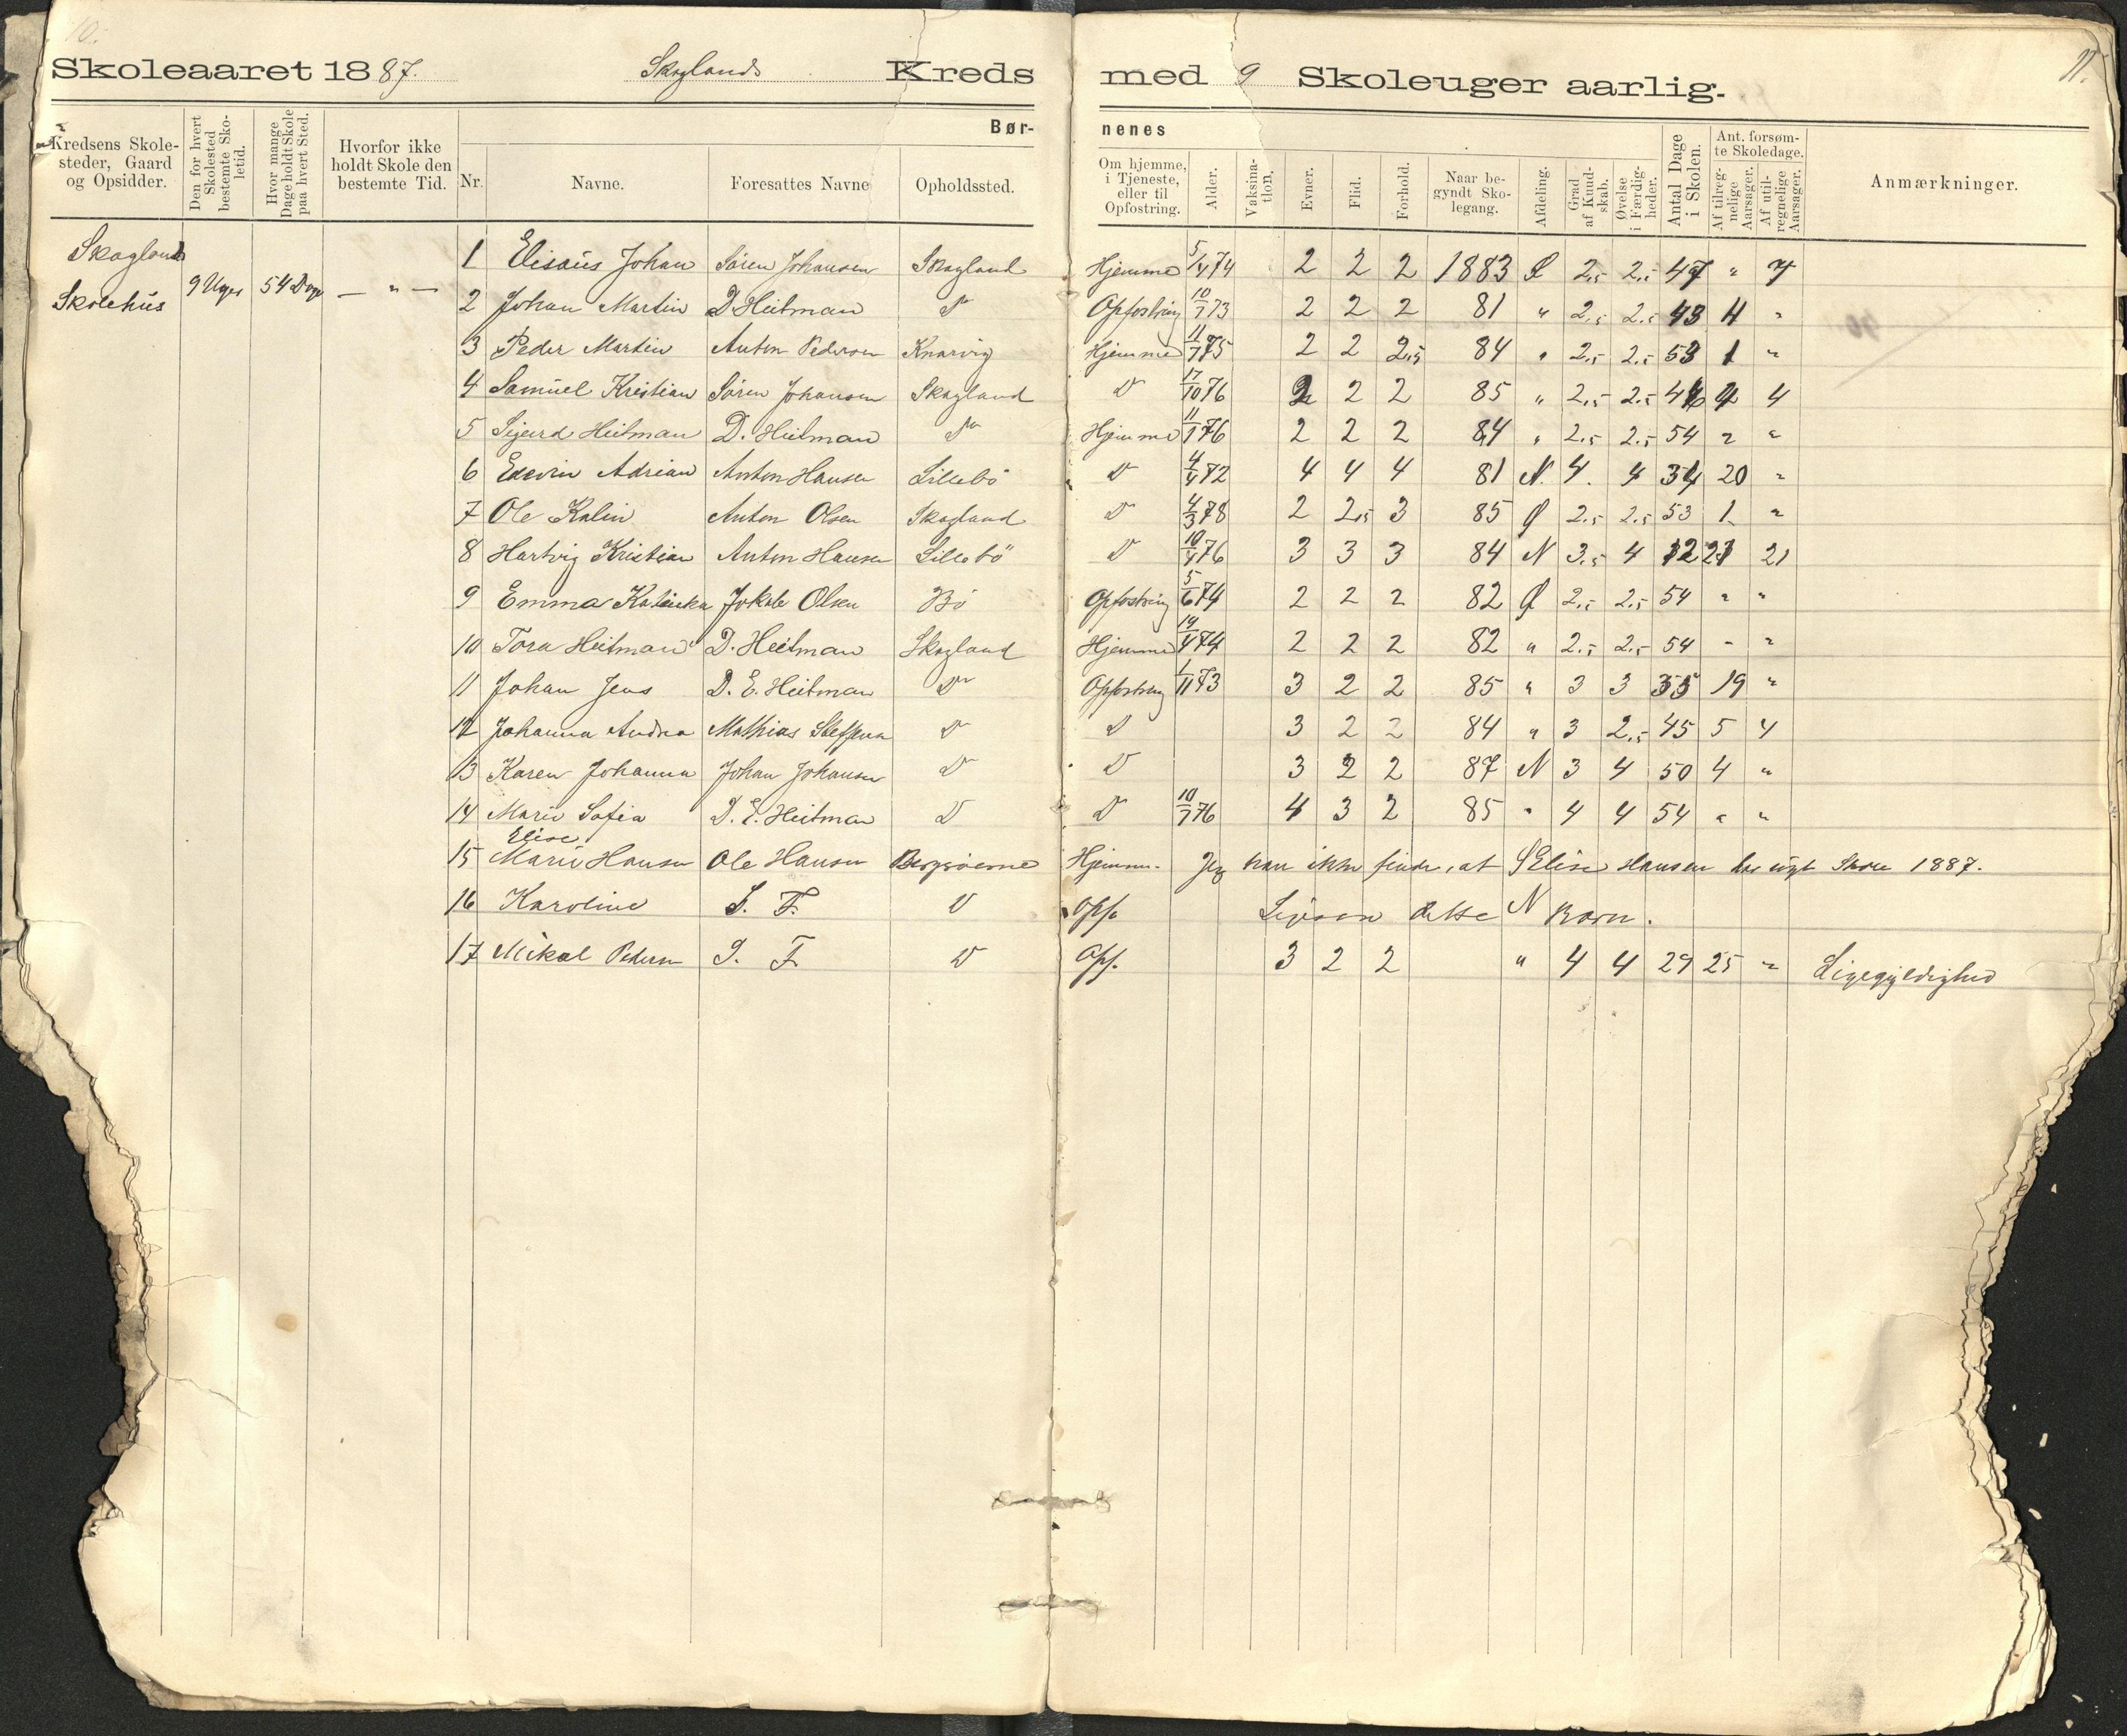 10.
11.
Skoleaaret 1887. Skoglands Kreds med 9 Skoleuger aarlig.
Kredsens Skole-
steder, Gaard
og Opsidder.
Den for hvert
Skolested
bestemte Sko-
letid.
Hvor mange
Dage holdt Skole
paa hvert Sted.
Hvorfor ikke
holdt Skole den
bestemte Tid.
Bør-
nenes
Nr.
Navne.
Foresattes Navne
Opholdssted.
Om hjemme,
i Tjeneste,
eller til
Opfostring.
Alder.
Vaksina-
tion.
Evner.
Flid.
Forhold.
Naar be-
gyndt Sko-
legang.
Afdeling.
Grad
af Kund-
skab.
Øvelse
i Færdig-
heder.
Antal Dage
i Skolen.
Ant. forsøm-
te Skoledage.
Af tilreg-
nelige
Aarsager.
Af util-
regnelige
Aarsager.
Anmærkninger.
Skogland
Skolehus 9 Uger 54 Dage — " —
1 Elisæus Johan Sören Johansen Skogland Hjemme 5/4 74 2 2 2 1883 2,5 2,5 47 " 7
2 Johan Martin D Heitman D Opfostring 10/7 73 2 2 2 81 " 2,5 2,5 43 11 "
3 Peder Martin Anton Pedersen Knarvig Hjemme 11/7 75 2 2 2,5 84 " 2,5 2,5 53 1 "
4 Samuel Kristian Sören Johansen Skogland D 17/10 76 2 2 2 85 " 2,5 2,5 46 4 4
5 Sigurd Heitman D. Heitman D Hjemme 11/1 76 2 2 2 84 " 2,5 2,5 54 " "
6 Edevin Adrian Anton Hansen Lillebö D 4/4 72 4 4 4 81 N. 4. 4 34 20 "
7 Ole Kalin Anton Olsen Skogland D 4/3 78 2 2,5 3 85 Ø 2,5 2,5 53 1 "
8 Hartvig Kristian Anton Hansen Lillebö D 10/4 76 3 3 3 84 N 3,5 4 12 21 21
9 Emma Katinka Jokob Olsen Bö Opfostring 5/6 74 2 2 2 82 Ø 2,5 2,5 54 " "
10 Tora Heitman D. Heitman Skogland Hjemme 19/4 74 2 2 2 82 " 2,5 2,5 54 " "
11 Johan Jens D. E. Heitman D Opfostring 1/11 73 3 2 2 85 " 3 3 35 19 "
12 Johanna Andrea Mathias Steffensen D D 3 2 2 84 " 3 2,5 45 5 4
13 Karen Johanna Johan Johansen D D 3 2 2 87 N 3 4 50 4 "
14 Marie Sofia D. E. Heitman D D 10/7 76 4 3 2 85 " 4 4 54 " "
Elise
15 Marie Hansen Ole Hansen Bergsöerne Hjemme. Jeg kan ikke finde, at Elise Hansen har sögt Skole 1887.
16 Karoline S. F. D Opf. Ligesaa dette N Barn.
17 Mikal Pedersen S. F. D Opf. 3 2 2 " 4 4 29 25 " Ligegyldighed